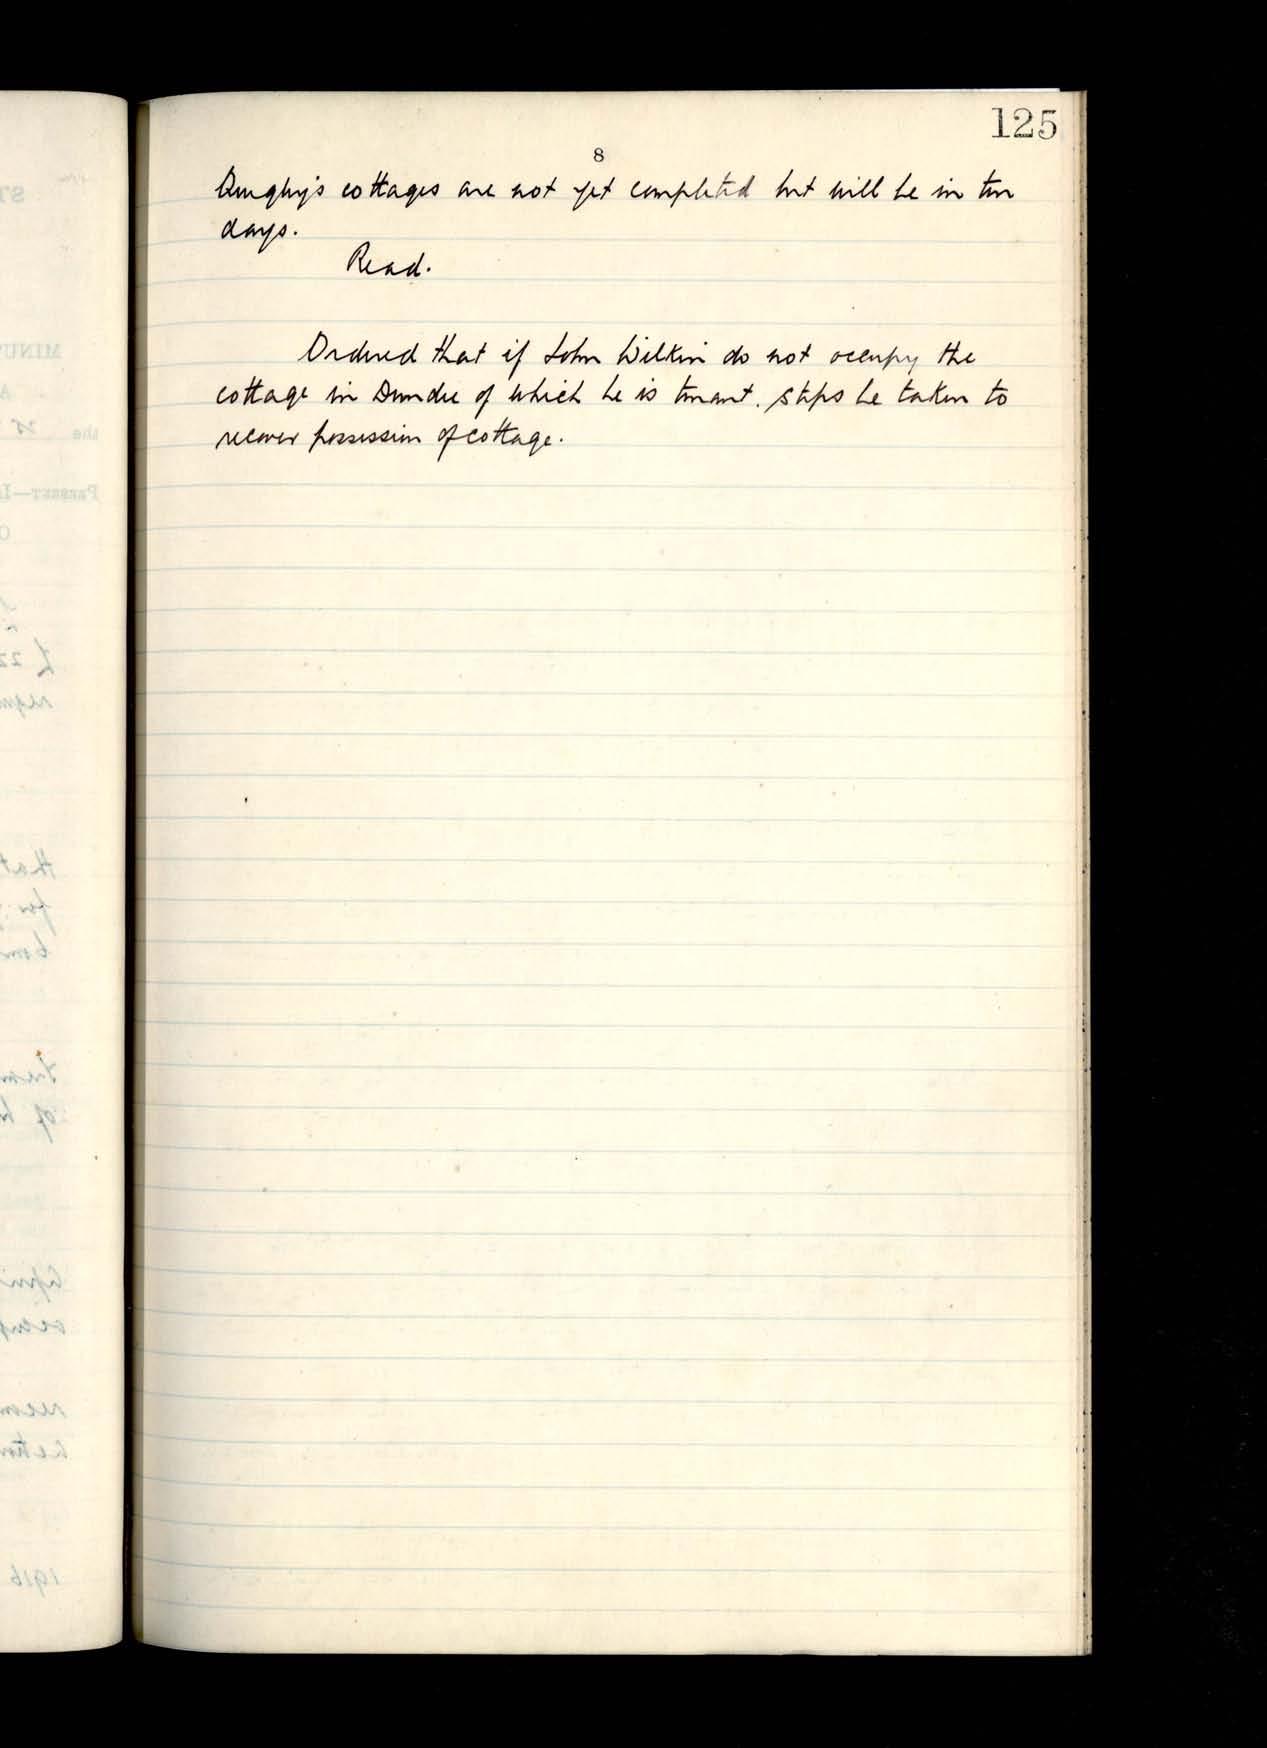 125
8
cottages are not yet completed but will be in ten
days.
Read.
Ordered that if John Wilkin do not occupy the
cottage in Dundee of which he is tenant. steps be taken to
recover possession of cottage.